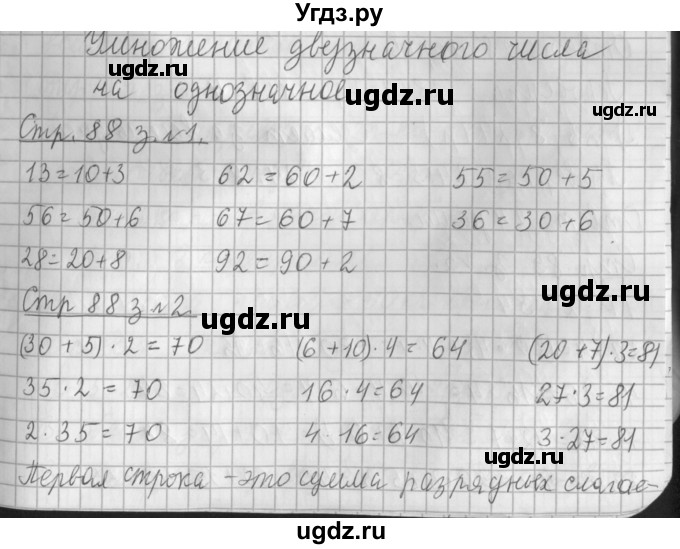 Угдз.ру
Умножение двузначного числа
на однозначное
Стр. 88 з. №1.
13=10+3 62=60+2 55=50+5
56=50+6 67=60+7 36=30+6
28=20+8 92=90+2
Стр 88 з №2.
(30+5)·2=70 (6+10)·4=64 (20+7)·3=81
35·2=70 16·4=64 27·3=81
2·35=70 4·16=64 3·27=81
Первая строка - это сумма разрядных слагае-
ugdz.ru
ugdz.ru
ugdz.ru
ugdz.ru
ugdz.ru
ugdz.ru
ugdz.ru
ugdz.ru
ugdz.ru